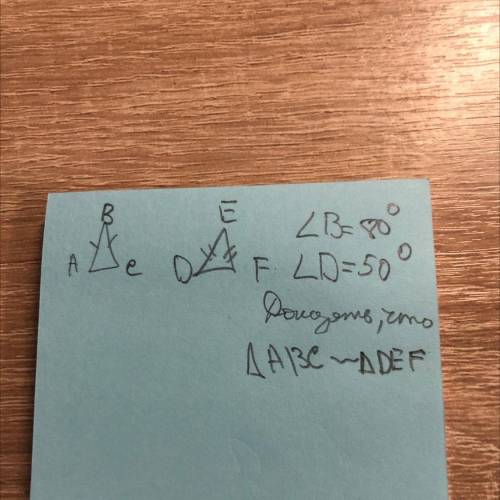 B
A C
E
D F
∠B=80°
∠D=50°
Доказать, что
△ABC ~ △DEF